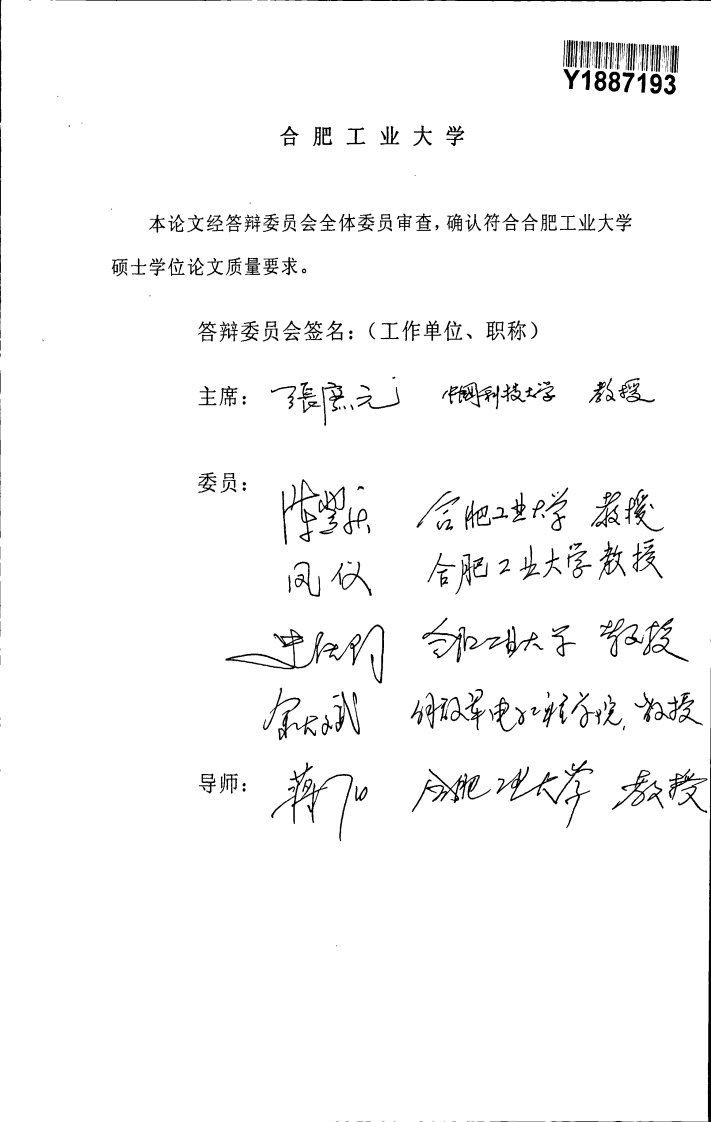 Y1887193
合肥工业大学
本论文经答辩委员会全体委员审查，确认符合合肥工业大学
硕士学位论文质量要求。
答辩委员会签名：（工作单位、职称）
主席： 張 元 中国科技大学 教授
委员： 陈 合肥工业大学 教授
凤仪 合肥工业大学教授
合肥工业大学 教授
解放军电子工程学院, 教授
导师： 蒋 合肥工业大学 教授